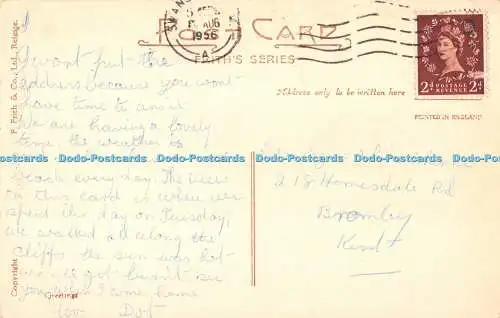 SWANS
AUG
1956
A
POST CARD
FRITH'S SERIES
Address only to be written here
PRINTED IN ENGLAND
2d POSTAGE REVENUE 2d
F. Frith & Co., Ltd., Reigate.
Copyright
Greetings
I wont put the
address because you wont
have time to answer
We are having a lovely
time the weather is
beach every day. The view
on this card is where we
spent the day on Tuesday,
we walked all along the
cliffs the sun was hot
we all got burnt see
you when I come home
love Dot
218 Homesdale Rd
Bromley
Kent
Dodo-Postcards Dodo-Postcards Dodo-Postcards Dodo-Postcards Dodo-Postcards Dodo-Postcards